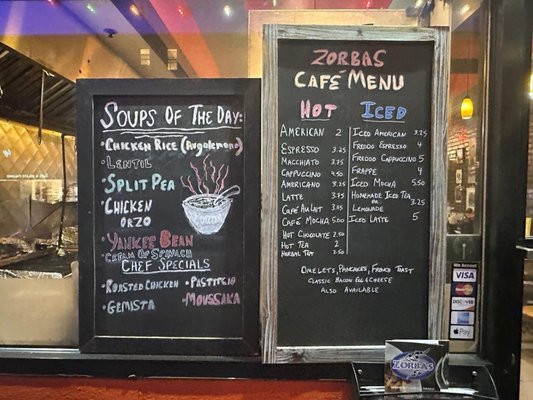 Soups Of The Day:
• Chicken Rice (Avgolemono)
• Lentil
• Split Pea
• Chicken Orzo
• Yankee Bean
• Cream Of Spinach
Chef Specials
• Roasted Chicken
• Pastitsio
• Gemista
• Moussaka
Zorbas
Café Menu
Hot
American 2
Espresso 3.25
Macchiato 3.75
Cappuccino 4.50
Americano 3.25
Latte 3.75
Café Au Lait 3.75
Café Mocha 5.00
Hot Chocolate 2.50
Hot Tea 2
Herbal Tea 2.50
Iced
Iced American 3.25
Freddo Espresso 4
Freddo Cappuccino 5
Frappe 4
Iced Mocha 5.50
Homemade Iced Tea
or
Lemonade 3.25
Iced Latte 5
Omelets, Pancakes, French Toast
Classic Bacon Egg & Cheese
Also Available
We Accept
VISA
MasterCard
DISCOVER
Pay
ZORBAS